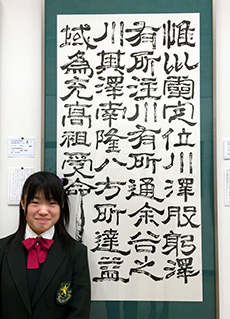 惟巛靈定位川澤股躬澤
有所注川有所通余谷之
川其澤南隆八方所達益
域為充高祖受命